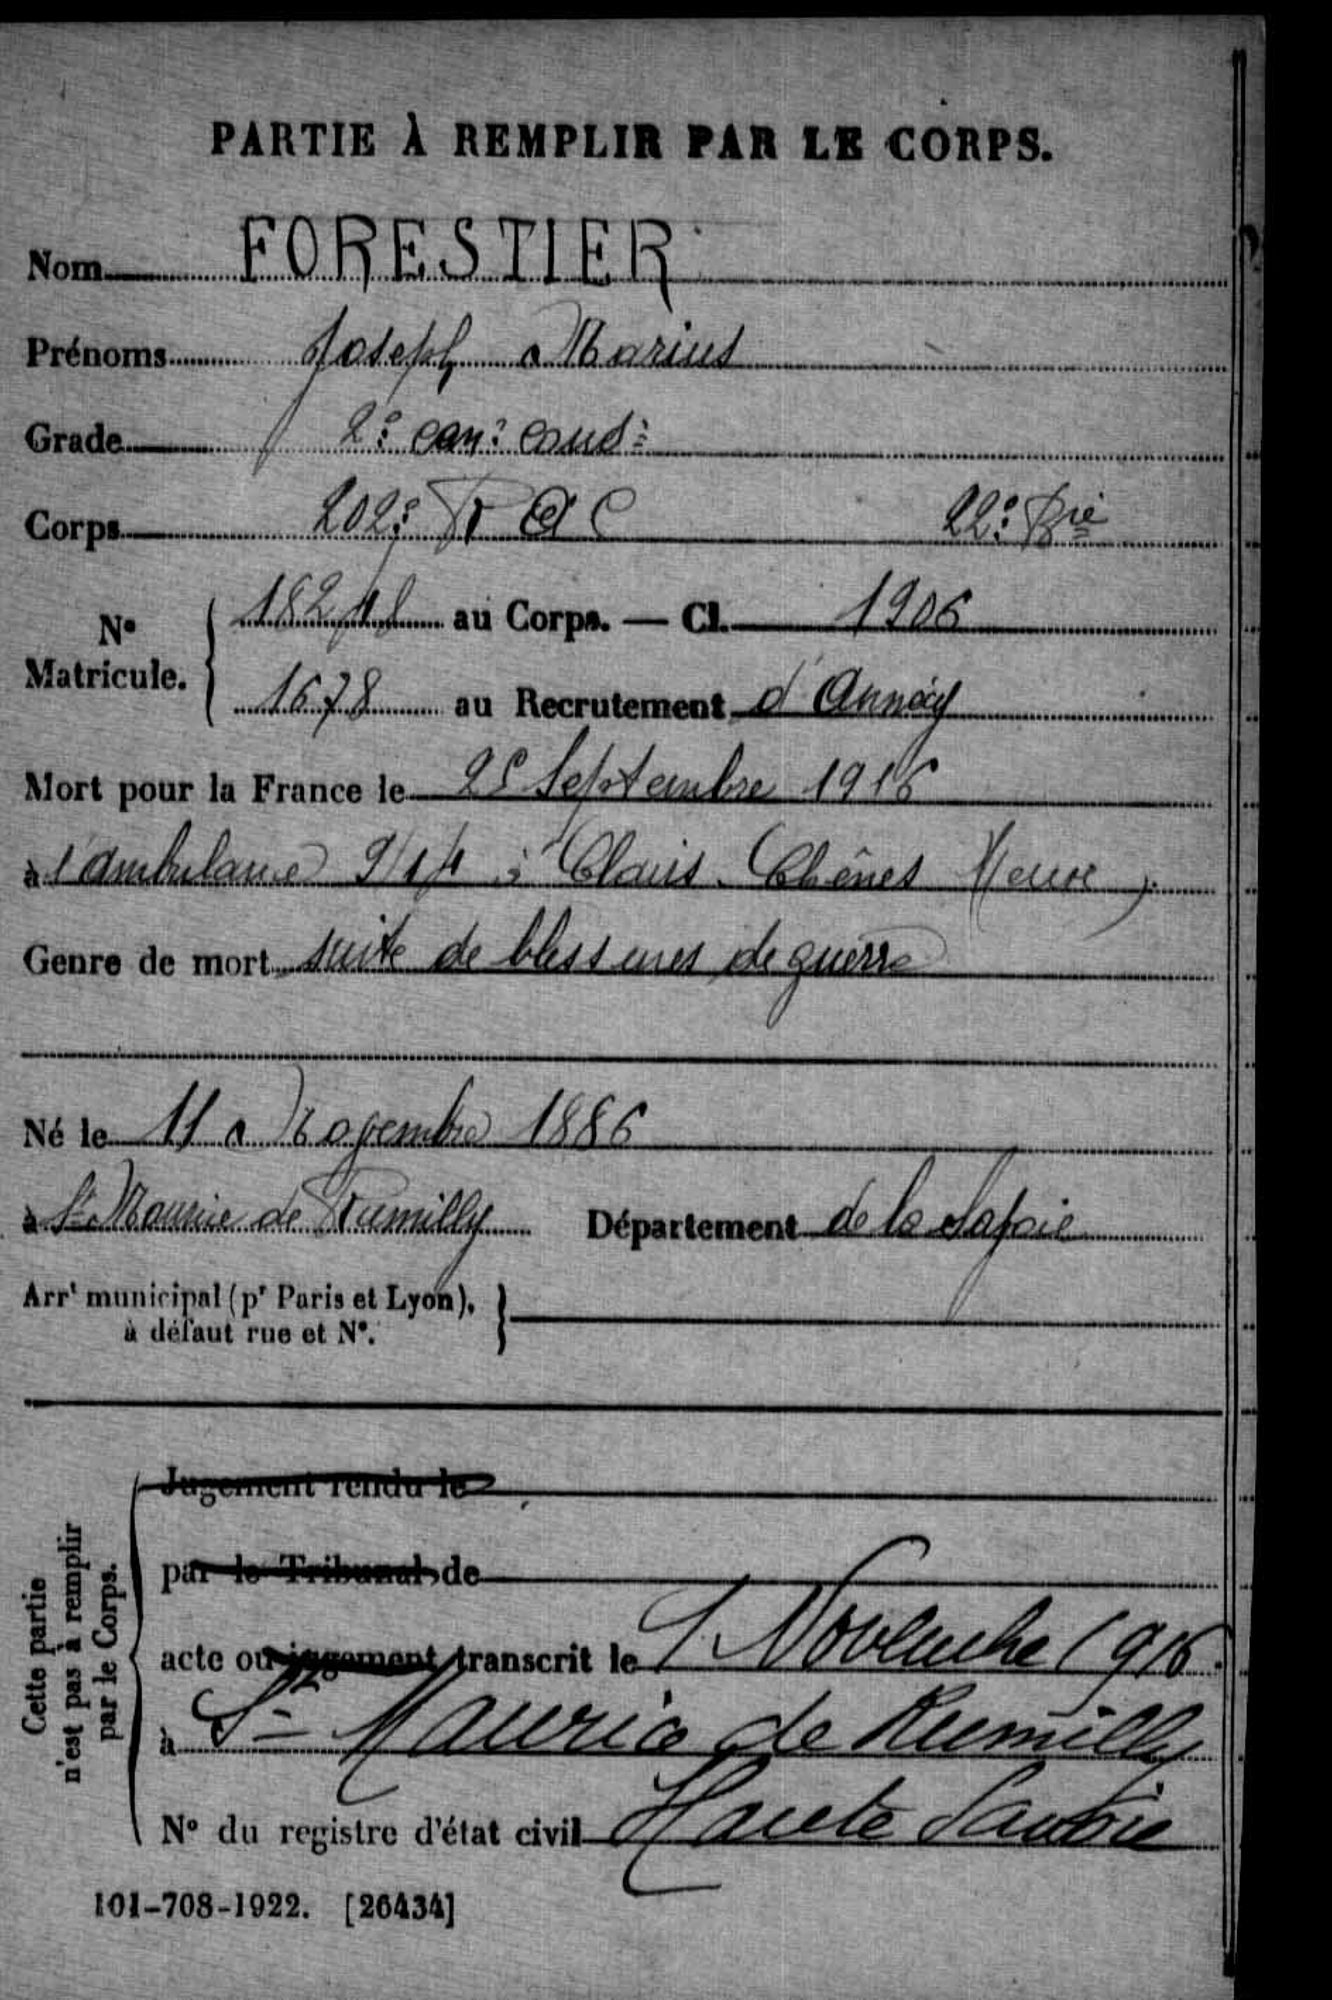 PARTIE À REMPLIR PAR LE CORPS.
Nom FORESTIER
Prénoms Joseph Marius
Grade 2e can. cond.
Corps 202e R A C 22e Bie
N° Matricule. au Corps. — Cl. 1906
1678 au Recrutement d'Annecy
Mort pour la France le Septembre 1916
à l'ambulance à Clairs Chênes Meuse
Genre de mort suite de blessures de guerre
Né le 11 Novembre 1886
à St Maurice de Rumilly Département de la Savoie
Arrt municipal (pr Paris et Lyon),
à défaut rue et N°.
Cette partie
n'est pas à remplir
par le Corps.
Jugement rendu le
par le Tribunal de
acte ou jugement transcrit le 1 Novembre 1916.
à St Maurice de Rumilly
N° du registre d'état civil Haute Savoie
101-708-1922. [26434]